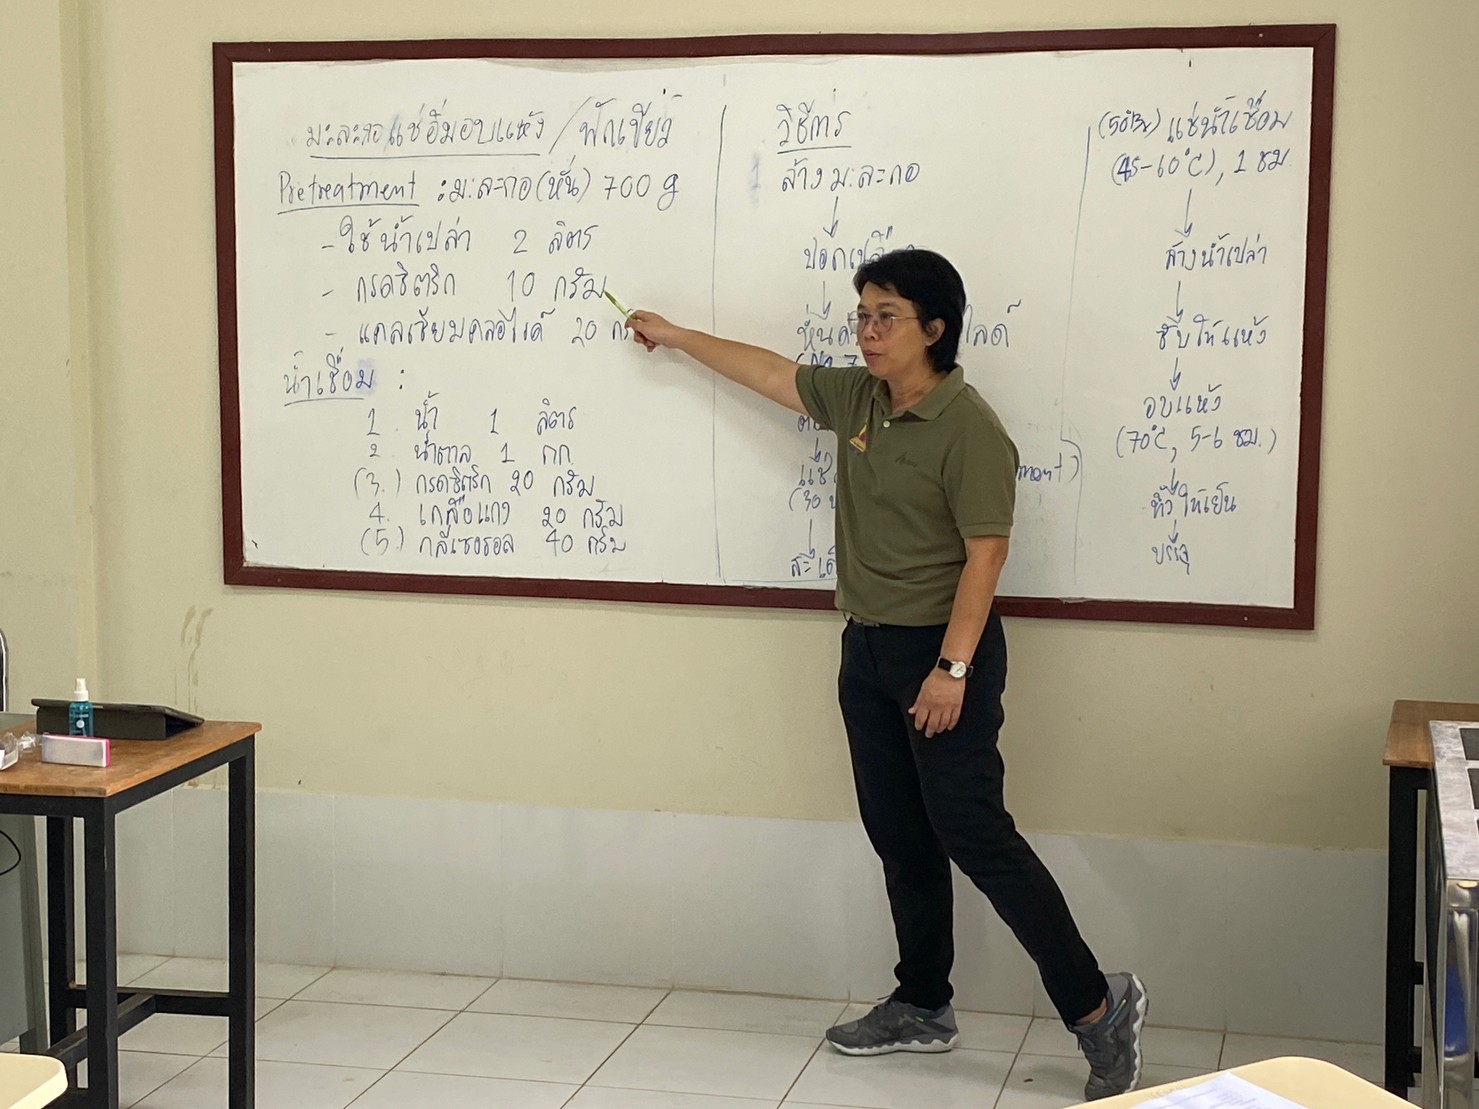 มะละกอแช่อิ่มอบแห้ง / ฟักเขียว
Pretreatment : มะละกอ (หั่น) 700 g
- ใช้น้ำเปล่า 2 ลิตร
- กรดซิตริก 10 กรัม
- แคลเซียมคลอไรด์ 20 กรั
น้ำเชื่อม :
1. น้ำ 1 ลิตร
2. น้ำตาล 1 กก.
(3.) กรดซิตริก 20 กรัม
4. เกลือแกง 20 กรัม
(5.) กลีเซอรอล 40 กรัม
วิธีการ
1 ล้างมะละกอ
ปอกเปลือก
ไลด์
แช่
(30
สะเด็
(50°Bx) แช่น้ำเชื่อม
(45-60°C), 1 ชม.
ล้างน้ำเปล่า
ซับให้แห้ง
อบแห้ง
(70°C, 5-6 ชม.)
ทิ้งให้เย็น
บรรจุ